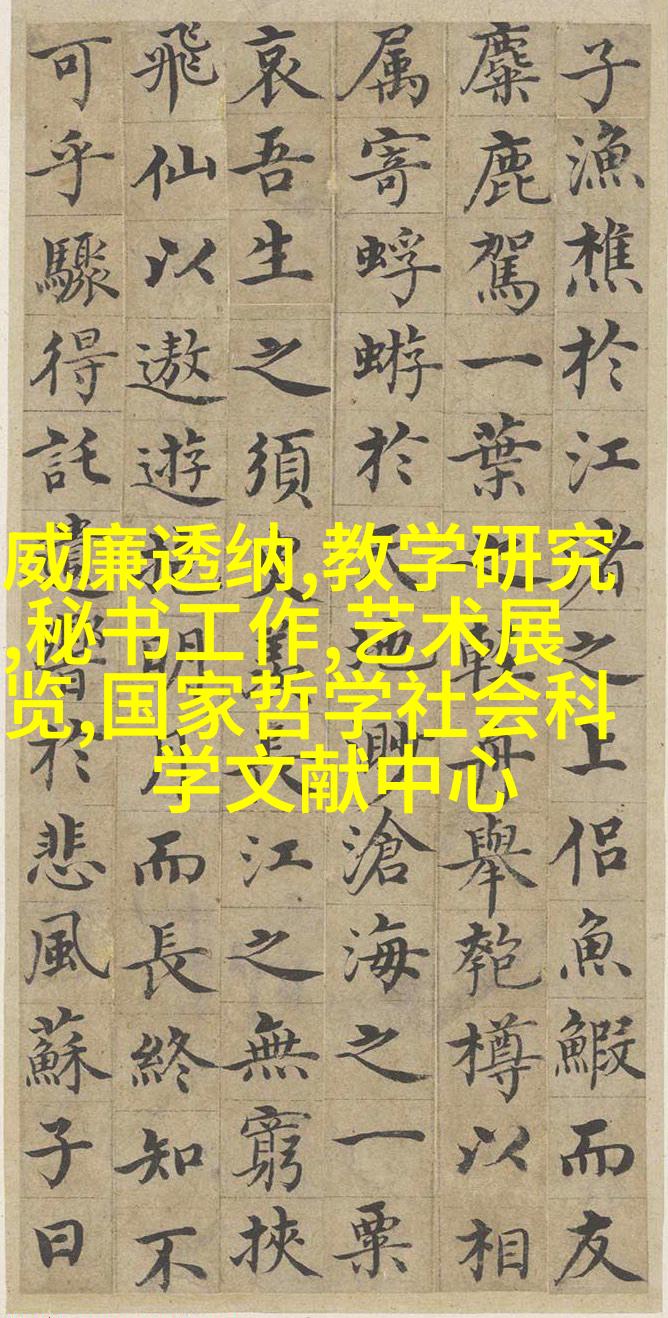 威廉透纳,教学研究
,秘书工作,艺术展
览,国家哲学社会科
学文献中心
子漁樵於江者之上侶魚鰕而友
麋鹿駕一葉舟舉匏樽以相
属寄蜉蝣於天地渺滄海之一粟
哀吾生之須臾羡長江之無窮挾
飛仙以遨遊抱明月而長終知不
可乎驟得託遺響於悲風蘇子曰